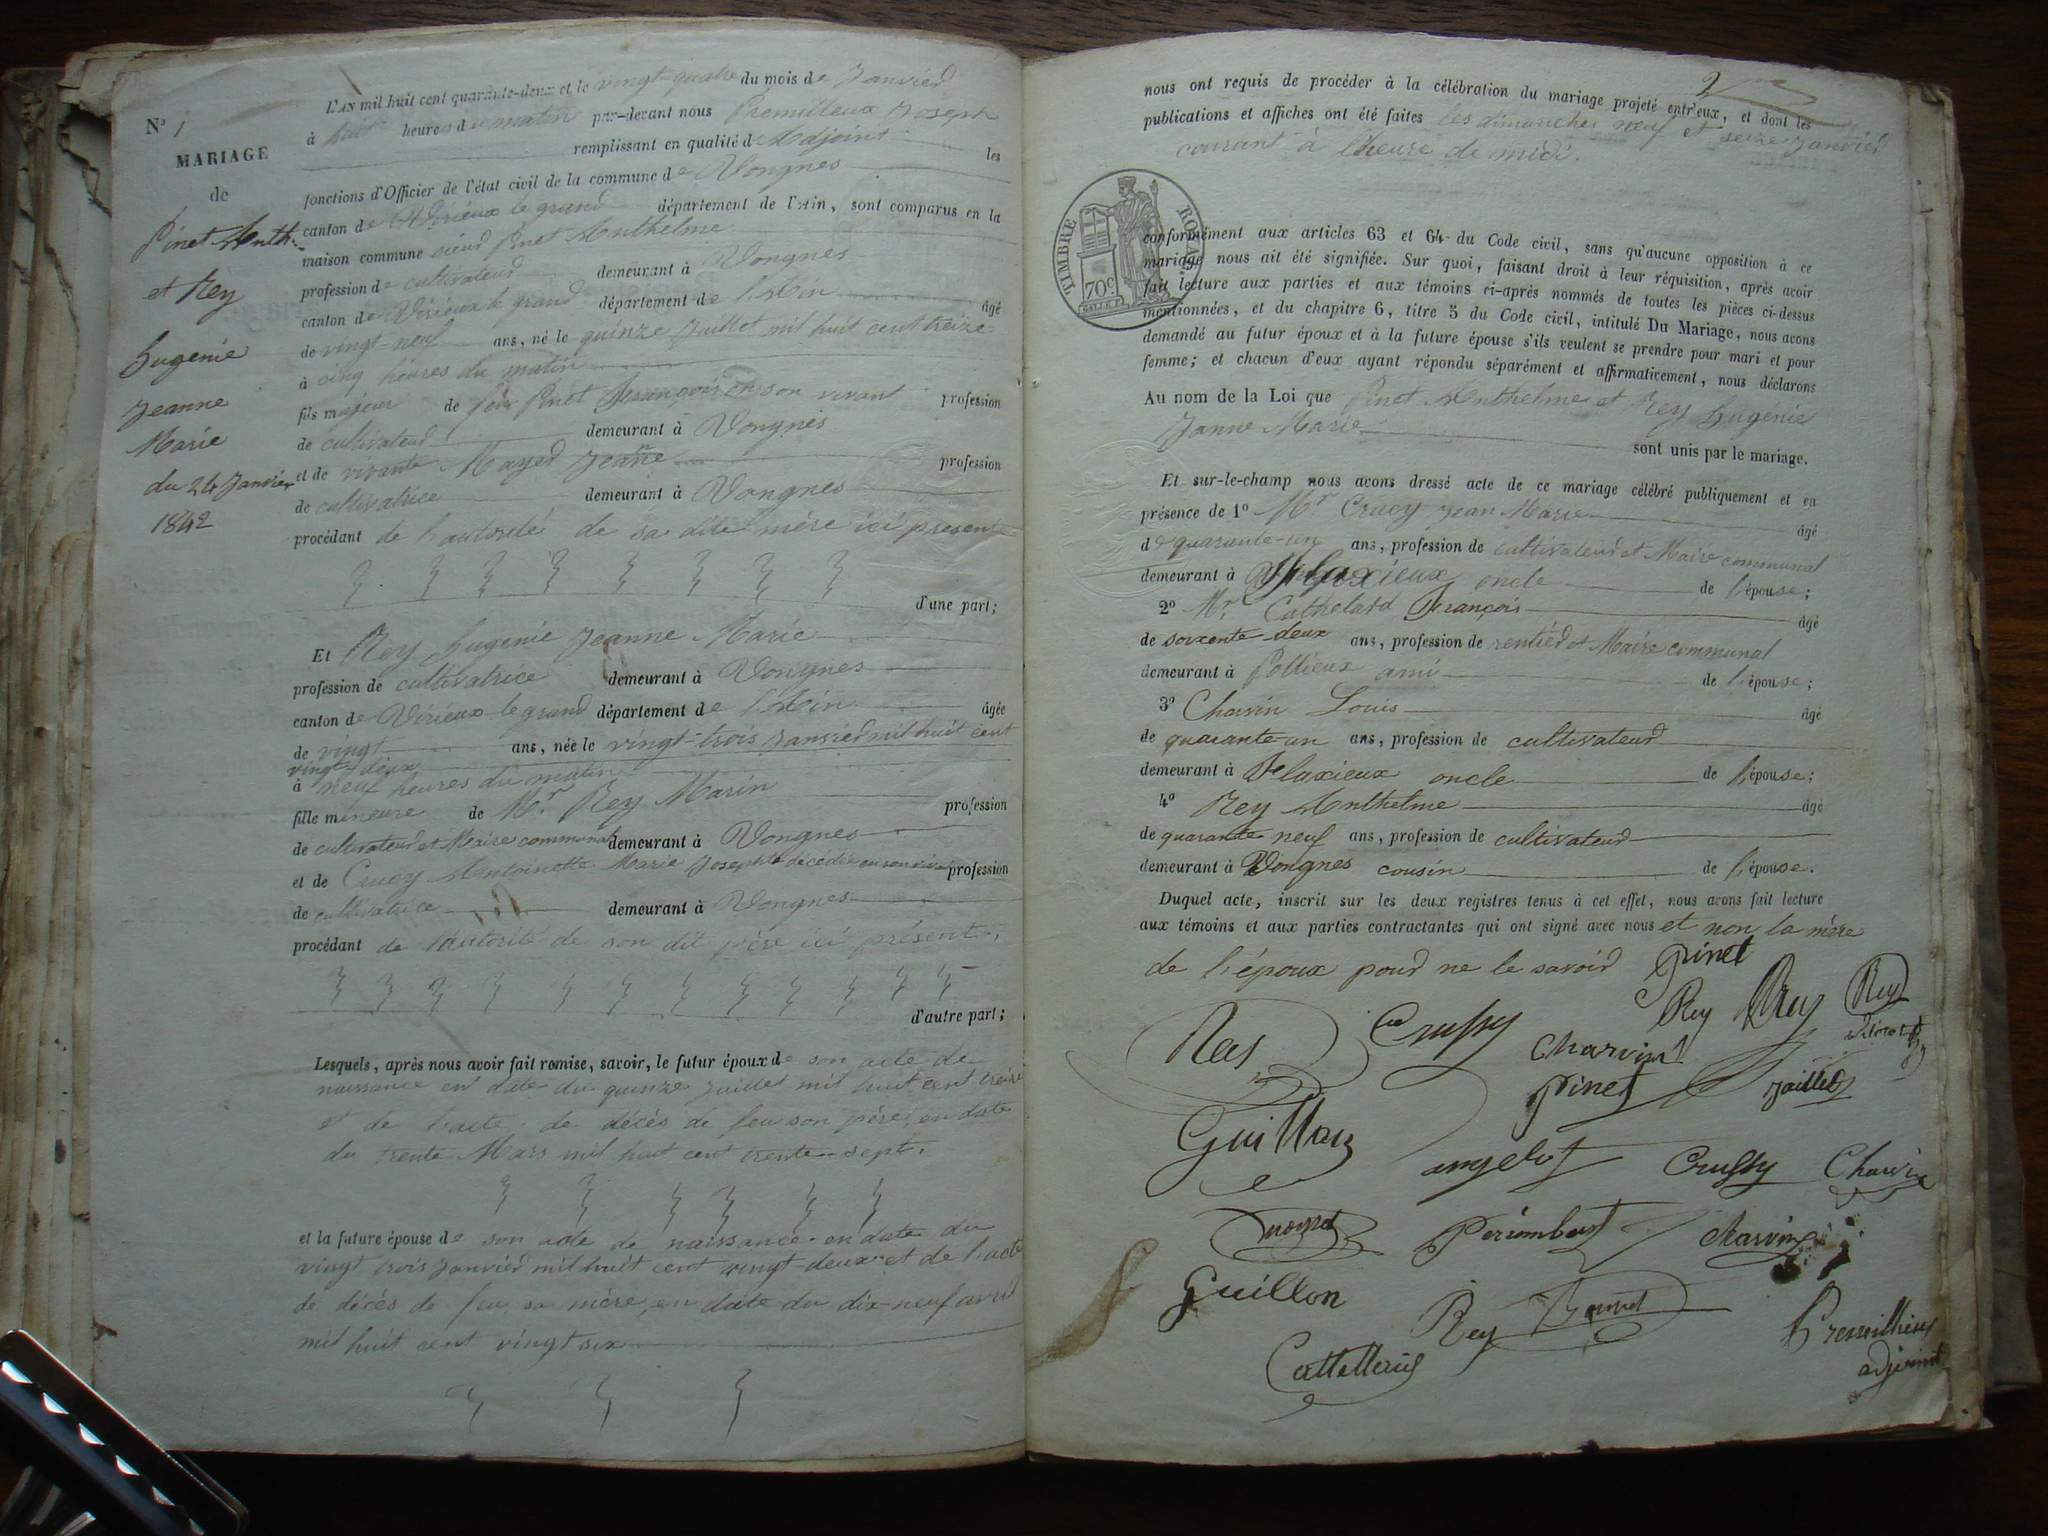 N° 1
MARIAGE
de
Pinet Anth.
et Rey
Eugenie
Jeanne
Marie
du 24 Janvier
1842
L'AN mil huit cent quarante-deux et le vingt-quatre du mois de Janvier
à huit heures du matin par-devant nous Premilleux Joseph
remplissant en qualité d'Adjoint les
fonctions d'Officier de l'état civil de la commune de Vongnes
canton de Virieux le grand département de l'Ain, sont comparus en la
maison commune sieur Pinet Anthelme
profession de cultivateur demeurant à Vongnes
canton de Virieux le grand département de l'Ain âgé
de vingt-neuf ans, né le quinze Juillet mil huit cent treize
à cinq heures du matin
fils majeur de feu Pinet François en son vivant profession
de cultivateur demeurant à Vongnes
et de vivante Mayer Jeanne profession
de cultivatrice demeurant à Vongnes
procédant de l'autorité de sa dite mère ici présente
d'une part;
Et Rey Eugenie Jeanne Marie
profession de cultivatrice demeurant à Vongnes
canton de Virieux le grand département de l'Ain âgée
de vingt ans, née le vingt-trois Janvier mil huit cent
vingt deux
à neuf heures du matin
fille mineure de Mr. Rey Marin profession
de cultivateur et Maire communal demeurant à Vongnes
et de Crucy Antoinette Marie Josephte décédée en son vivant profession
de cultivatrice demeurant à Vongnes
procédant de l'autorité de son dit père ici présent.
d'autre part;
Lesquels, après nous avoir fait remise, savoir, le futur époux de son acte de
naissance en date du quinze Juillet mil huit cent treize
et de l'acte de décès de feu son père, en date
du trente Mars mil huit cent trente-sept.
et la future épouse de son acte de naissance en date du
vingt trois Janvier mil huit cent vingt-deux et de l'acte
de décès de feu sa mère, en date du dix-neuf avril
mil huit cent vingt six
2
nous ont requis de procéder à la célébration du mariage projeté entr'eux, et dont les
publications et affiches ont été faites les dimanches neuf et seize Janvier
courant à l'heure de midi.
TIMBRE ROYAL
70c
conformément aux articles 63 et 64 du Code civil, sans qu'aucune opposition à ce
mariage nous ait été signifiée. Sur quoi, faisant droit à leur réquisition, après avoir
fait lecture aux parties et aux témoins ci-après nommés de toutes les pièces ci-dessus
mentionnées, et du chapitre 6, titre 5 du Code civil, intitulé Du Mariage, nous avons
demandé au futur époux et à la future épouse s'ils veulent se prendre pour mari et pour
femme; et chacun d'eux ayant répondu séparément et affirmativement, nous déclarons
Au nom de la Loi que Pinet Anthelme et Rey Eugenie
Janne Marie sont unis par le mariage.
Et sur-le-champ nous avons dressé acte de ce mariage célébré publiquement et en
présence de 1° Mr Crucy Jean Marie âgé
de quarante-un ans, profession de cultivateur et Maire communal
demeurant à Flaxieux oncle de l'épouse;
2° Mr. Cathelard François âgé
de soixente-deux ans, profession de rentier et Maire communal
demeurant à Pollieux ami de l'épouse;
3° Charvin Louis âgé
de quarante-un ans, profession de cultivateur
demeurant à Flaxieux oncle de l'épouse;
4° Rey Anthelme âgé
de quarante neuf ans, profession de cultivateur
demeurant à Vongnes cousin de l'épouse.
Duquel acte, inscrit sur les deux registres tenus à cet effet, nous avons fait lecture
aux témoins et aux parties contractantes qui ont signé avec nous et non la mère
de l'époux pour ne le savoir pinet
Rey Rey Rey
Crussy Charvin
pinet Jaillet
angelot Crussy Charvin
Charvin
Guillon
Rey
Premillieux
adjoint